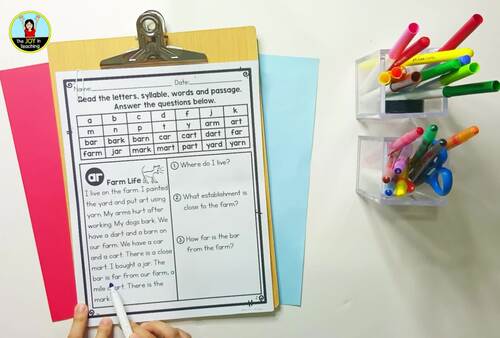 The JOY in Teaching
Name: Date:
Read the letters, syllable, words and passage.
Answer the questions below.
a b c d f j k
m n p t y arm art
bar bark barn car cart dart far
farm jar mark mart part yard yarn
ar Farm Life
I live on the farm. I painted
the yard and put art using
yarn. My arms hurt after
working. My dogs bark. We
have a dart and a barn on
our farm. We have a car
and a cart. There is a close
mart. I bought a jar. The
bar is far from our farm, a
mile apart. There is the
mark.
1 Where do I live?
2 What establishment is
close to the farm?
3 How far is the bar
from the farm?